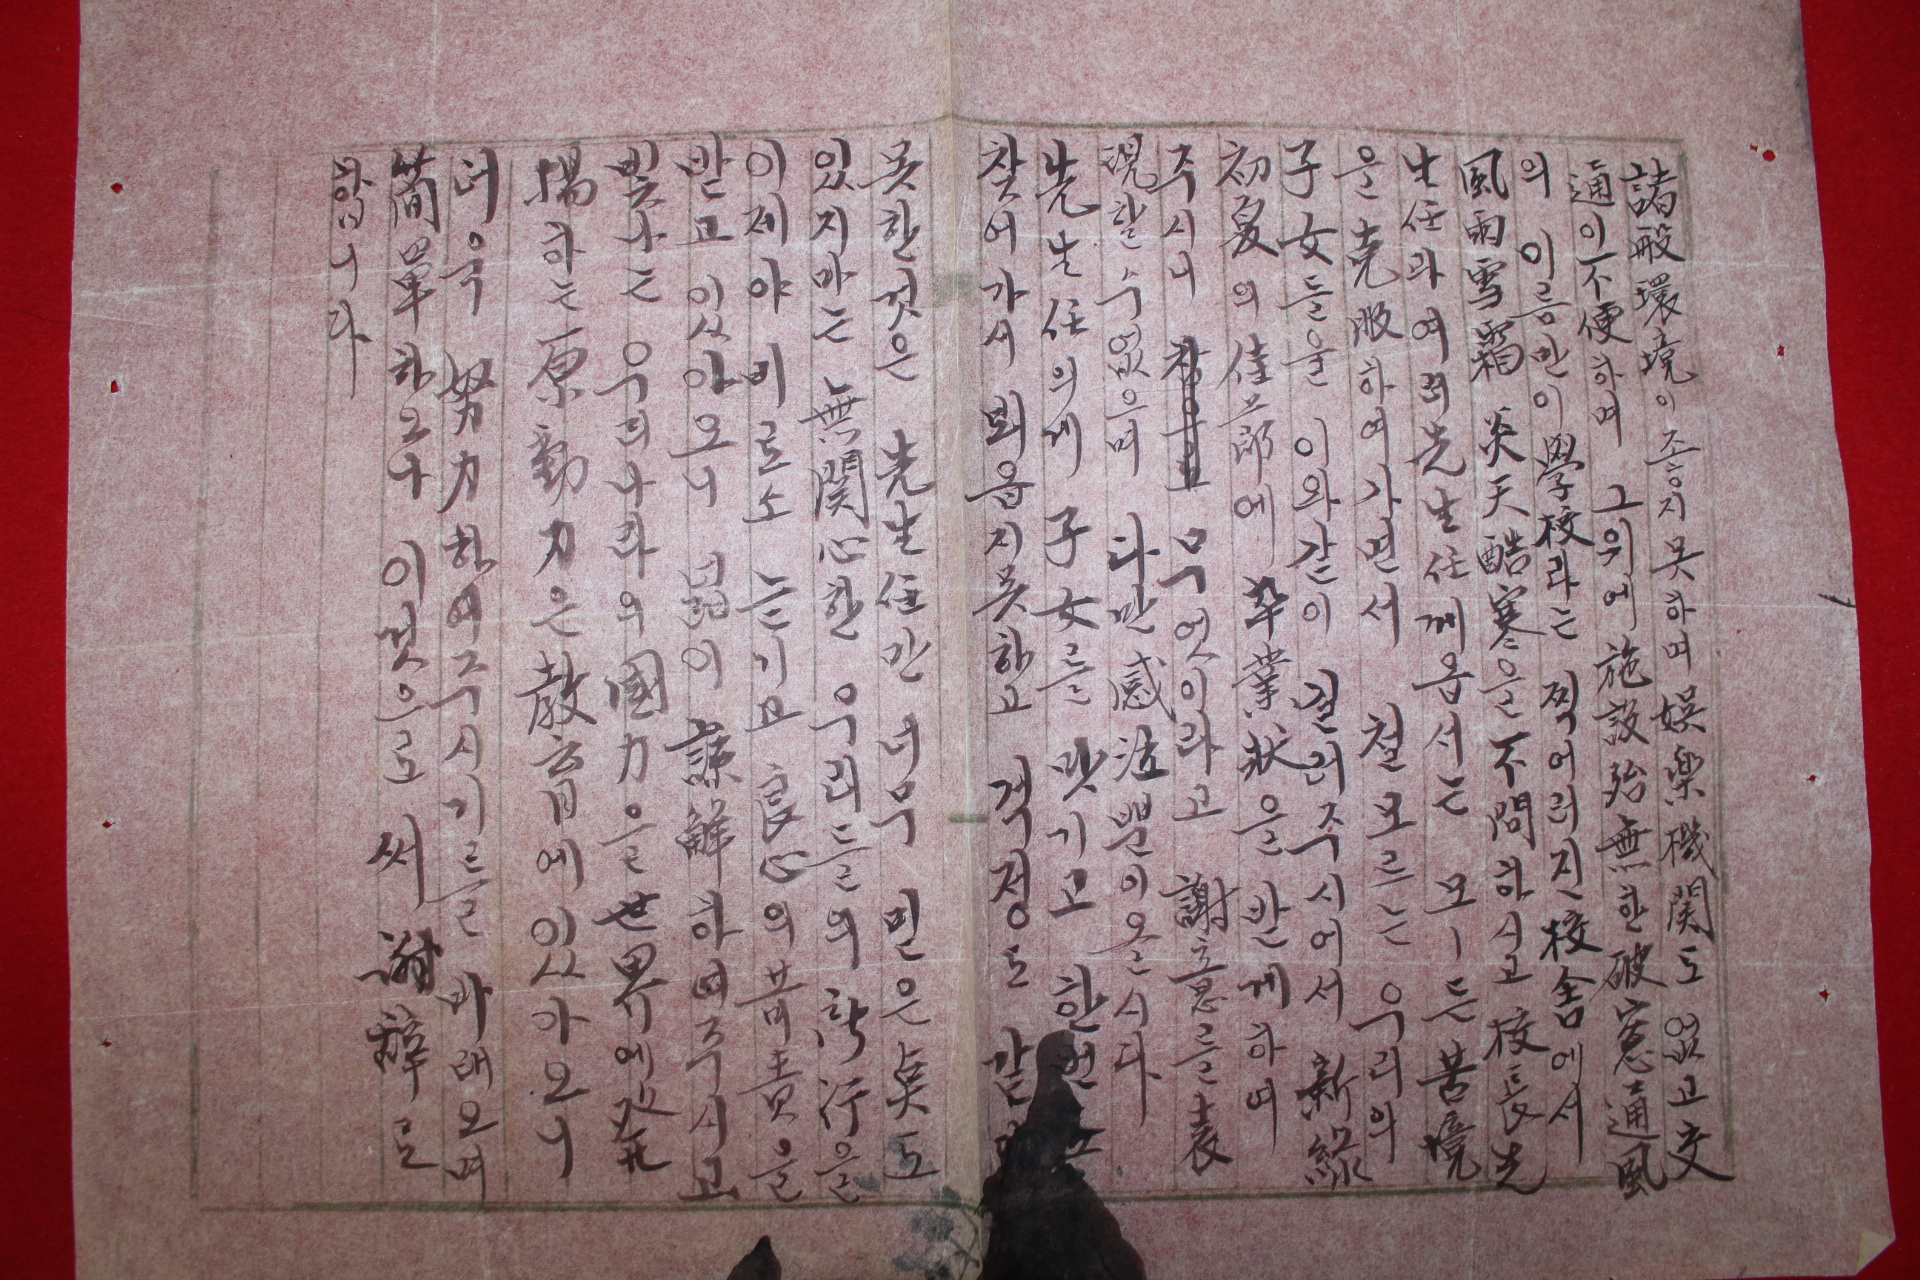 諸般環境이 조흐지 못하며 娛楽機関도 없고 交
通이 不便하며 그위에 施設殆無한 破窓通風
의 이름만이 學校라는 찍어러진 校舍에서
風雨雪霜 炎天酷寒을 不問하시고 校長先
生任과 여러先生任께옵서는 모ー든 苦境
을 克服하여가면서 철모르는 우리의
子女들을 이와같이 길러주시어서 新緑
初夏의 佳節에 卒業狀을 받게하며
주시니 무엇이라고 謝意를 表
現할 수없으며 다만 感泣뿐이올시다
先生任의게 子女를 맛기고 한번도
찾어가서 뵈옵지못하고 걱정도 같이
못한것은 先生任만 너무 믿은点도
있지마는 無関心한 우리들의 所行을
이제야 비로소 늗기고 良心의 苛責을
받고 있아오니 넓이 諒解하여주시고
빛나는 우리나라의 國力을 世界에 発
揚하는 原動力은 敎育에 있아오니
더욱 努力하여주시기를 바래오며
簡單하오나 이것으로써 謝辭로
함니다